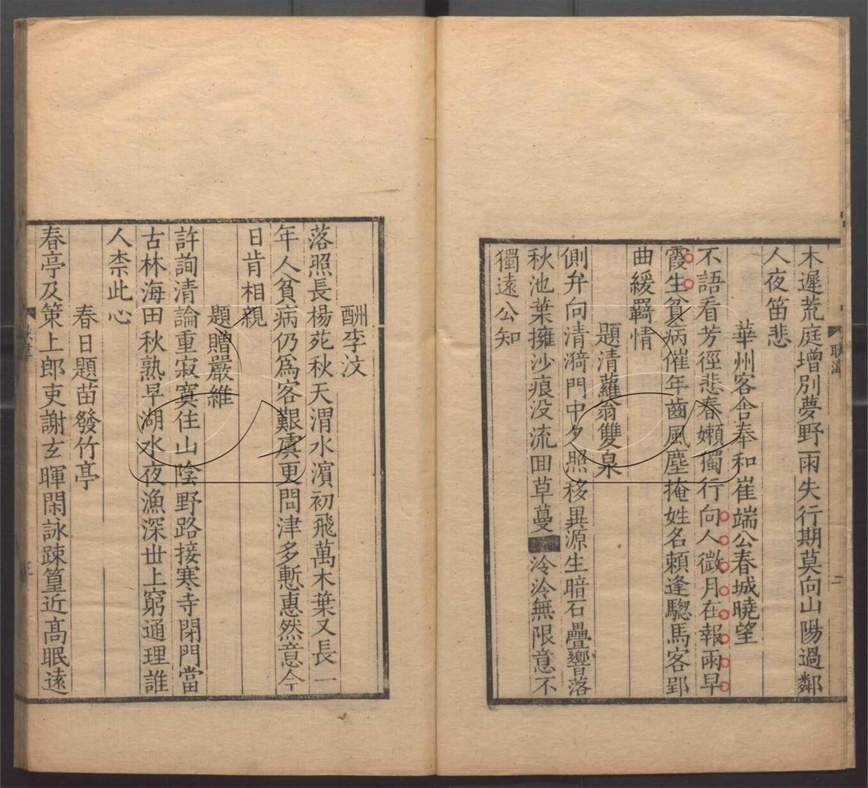 木遲荒庭增別夢野雨失行期莫向山陽過鄰
人夜笛悲
華州客舍奉和崔端公春城曉望
不語看芳徑悲春嬾獨行向人微月在報雨早
霞生貧病催年齒風塵掩姓名賴逢驄馬客郢
曲緩羇情
題清蘿翁雙泉
側弁向清漪門中夕照移異源生暗石疊響落
秋池葉擁沙痕没流回草蔓
泠泠無限意不
獨遠公知
酬李汶
落照長楊苑秋天渭水濱初飛萬木葉又長一
年人貧病仍爲客艱虞更問津多慙惠然意今
日肯相親
題贈嚴維
許詢清論重寂寞住山陰野路接寒寺閉門當
古林海田秋熟早湖水夜漁深世上窮通理誰
人柰此心
春日題苗發竹亭
春亭及策上郎吏謝玄暉閑詠踈篁近高眠遠